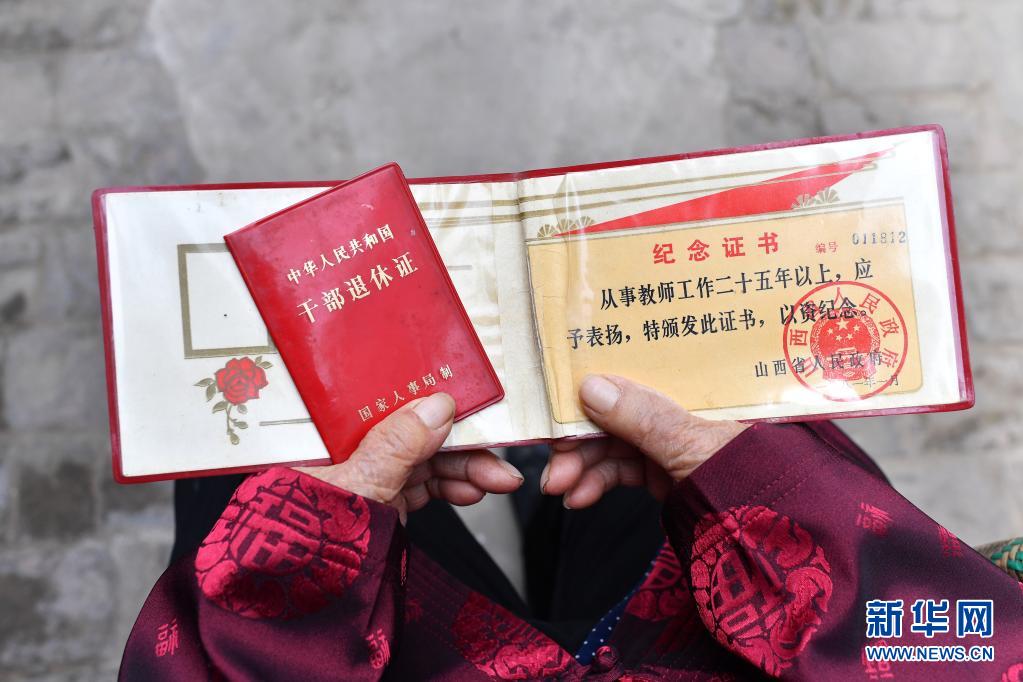 中华人民共和国
干部退休证
国家人事局制
纪念证书
编号 011812
从事教师工作二十五年以上，应
予表扬，特颁发此证书，以资纪念。
山西省人民政府
新华网
WWW.NEWS.CN